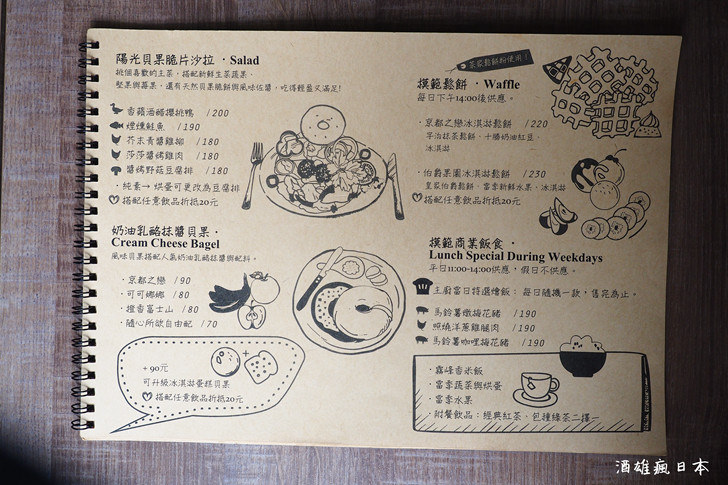 陽光貝果脆片沙拉 · Salad
挑個喜歡的主菜，搭配新鮮生菜蔬果、
堅果與莓果，還有天然貝果脆餅與風味佐醬，吃得輕盈又滿足!
香蘋酒醋櫻桃鴨 /200
煙燻鮭魚 /190
芥末青醬雞柳 /180
莎莎醬烤雞肉 /180
醬烤野菇豆腐排 /180
· 純素→烘蛋可更改為豆腐排
搭配任意飲品折抵20元
奶油乳酪抹醬貝果 ·
Cream Cheese Bagel
風味貝果搭配人氣奶油乳酪抹醬與配料。
· 京都之戀 /90
· 可可娜娜 /80
· 擋香富士山 /80
· 隨心所欲自由配 /70
+90元
可升級冰淇淋蛋糕貝果
搭配任意飲品折抵20元
蒸氣鬆餅粉使用!
摸範鬆餅 · Waffle
每日下午14:00後供應。
· 京都之戀冰淇淋鬆餅 /220
宇治抹茶鬆餅、十勝奶油紅豆、
冰淇淋
· 伯爵果園冰淇淋鬆餅 /230
皇家伯爵鬆餅、當季新鮮水果、冰淇淋
搭配任意飲品折抵20元
摸範商業飯食 ·
Lunch Special During Weekdays
平日11:00-14:00供應，假日不供應。
主廚當日特選燴飯：每日隨機一款，售完為止。
馬鈴薯燉梅花豬 /190
照燒洋蔥雞腿肉 /190
馬鈴薯咖哩梅花豬 /190
· 霧峰香米飯
· 當季蔬菜與烘蛋
· 當季水果
· 附餐飲品：經典紅茶、包種綠茶二擇一
酒雄瘋日本